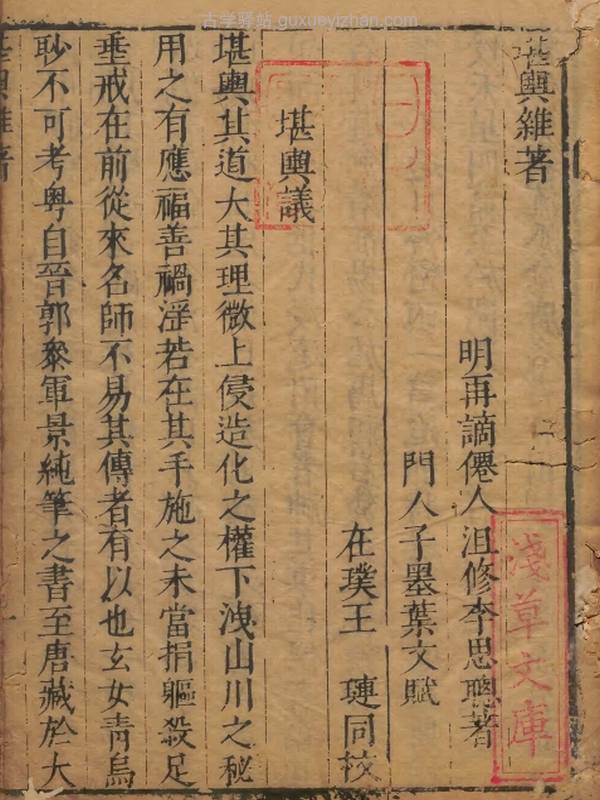 古学驿站 guxueyizhan.com
堪輿雜著
明再謫僊人沮修李思聰著
門人子墨葉文賦
在璞王 璉同校
堪輿議
堪輿其道大其理微上侵造化之權下洩山川之秘
用之有應福善禍淫若在其手施之未當捐軀殺足
垂戒在前從來名師不易其傳者有以也玄女青烏
眇不可考粵自晉郭叅軍景純筆之書至唐藏於大
淺草文庫